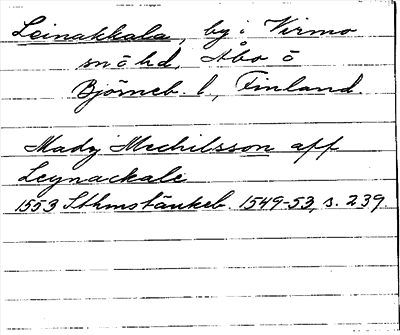 Leinakkala, by i Virmo
sn o hd, Åbo o
Björneb. l., Finland.
Mady Mechilsson aff
Leynackale
1553 Sthmstänkeb. 1549-53, s. 239.